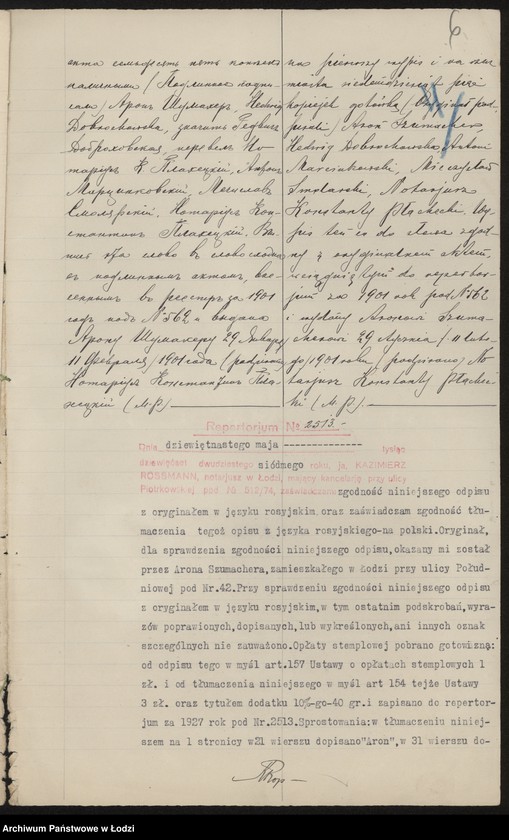 6
акта семьдесятъ пять копѣекъ
наличными / Подлинное подпи-
сали / Аронъ Шумахеръ, Hedwig
Dobrochowska, значитъ Гедвигъ
Доброховская, перевелъ Но-
таріусъ К. Плахецкій, Антонъ
Марцинковскій, Мечиславъ
Смолярскій, Нотаріусъ Кон-
стантинъ Плахецкій.
слово въ слово сходна
съ подлиннымъ актомъ, вне-
сеннымъ въ реестръ за 1901
годъ подъ № 562 и выдана
Арону Шумахеру 29 Января
11 Февраля / 1901 года / подписалъ
Нотаріусъ Константинъ Пла-
хецкій (М.П.)
na pierwszy wypis i na rzecz
miasta siedemdziesiąt pięć
kopiejek gotówką / Oryginał pod-
pisali / Aron Szumacher,
Hedwig Dobrochowska, Antoni
Marcinkowski, Mieczysław
Smolarski, Notarjusz
Konstanty Płachecki. Wy-
pis ten co do słowa zgod-
ny z oryginalnym aktem,
wciągniętym do repertor-
jum za 1901 rok pod № 562
i wydany Aronowi Szuma-
cherowi 29 Stycznia / 11 Lute-
go / 1901 roku, / podpisano / No-
tarjusz Konstanty Płachec-
ki (M.P.)
Repertorjum № 2513.-
Dnia dziewiętnastego maja tysiąc
dziewięćset dwudziestego siódmego roku, ja, KAZIMIERZ
ROSSMANN, notarjusz w Łodzi, mający kancelarję przy ulicy
Piotrkowskiej pod № 517/74, zaświadczam zgodność niniejszego odpisu
z oryginałem w języku rosyjskim, oraz zaświadczam zgodność tłu-
maczenia tegoż opisu z języka rosyjskiego-na polski.Oryginał,
dla sprawdzenia zgodności niniejszego odpisu,okazany mi został
przez Arona Szumachera,zamieszkałego w Łodzi przy ulicy Połud-
niowej pod Nr.42.Przy sprawdzeniu zgodności niniejszego odpisu
z oryginałem w języku rosyjskim,w tym ostatnim podskrobań,wyra-
zów poprawionych,dopisanych,lub wykreślonych,ani innych oznak
szczególnych nie zauważono.Opłaty stemplowej pobrano gotowizną:
od odpisu tego w myśl art.157 Ustawy o opłatach stemplowych 1
zł. i od tłumaczenia niniejszego w myśl art 154 tejże Ustawy
3 zł. oraz tytułem dodatku 10%-go-40 gr.i zapisano do repertor-
jum za 1927 rok pod Nr.2513.Sprostowania:w tłumaczeniu niniej-
szem na 1 stronicy w21 wierszu dopisano"Aron",w 31 wierszu do-
Archiwum Państwowe w Łodzi